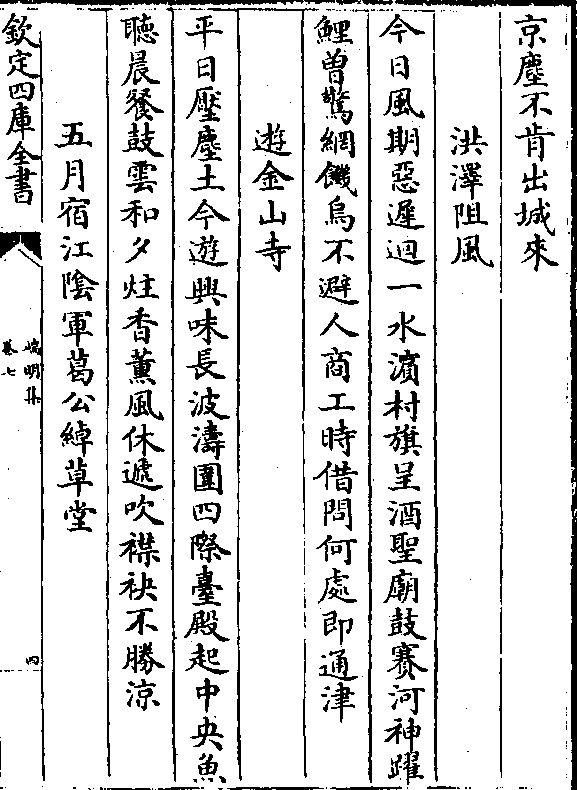 京塵不肯出城來
洪澤阻風
今日風期惡遲迴一水濵村旗呈酒聖廟鼓賽河神躍
鯉曾驚網饑烏不避人商工時借問何處即通津
遊金山寺
平日壓塵土今遊興味長波濤圍四際臺殿起中央魚
聽晨餐鼓雲和夕炷香薰風休遞吹襟袂不勝涼
五月宿江陰軍葛公綽草堂
欽定四庫全書
端明集
卷七
四